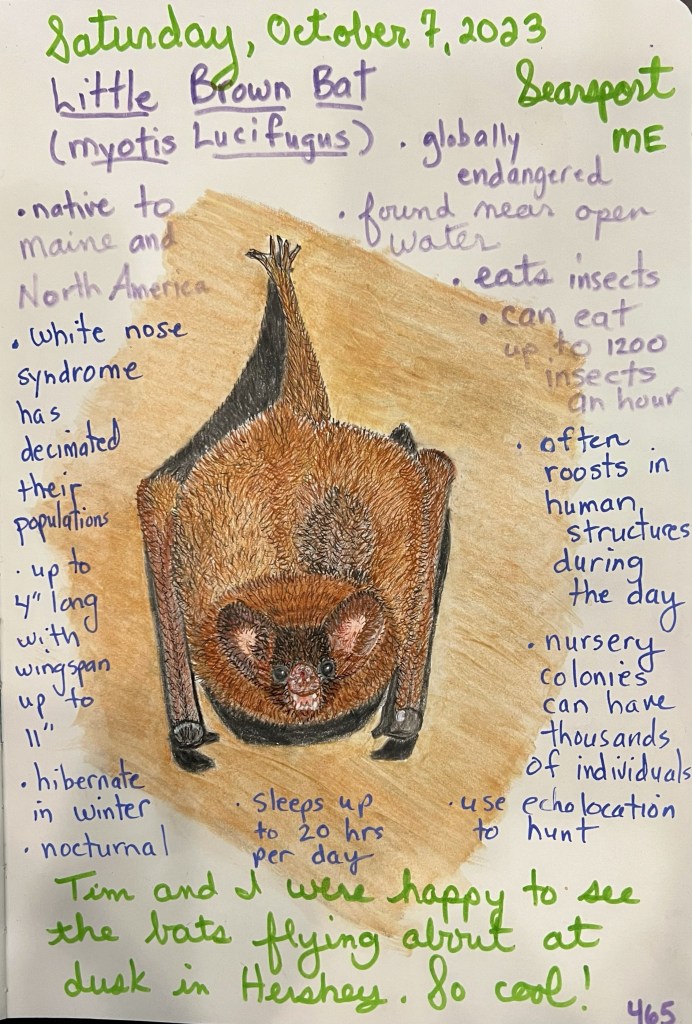 Saturday, October 7, 2023
Little Brown Bat
(myotis Lucifugus)
Searsport
ME
• globally
endangered
• found near open
water
• eats insects
• can eat
up to 1200
insects
an hour
• often
roosts in
human
structures
during
the day
• nursery
colonies
can have
thousands
of individuals
• use echolocation
to hunt
• native to
maine and
North America
• white nose
syndrome
has
decimated
their
populations
• up to
4" long
with
wingspan
up to
11"
• hibernate
in winter
• nocturnal
• sleeps up
to 20 hrs
per day
Tim and I were happy to see
the bats flying about at
dusk in Hershey. So cool!
465